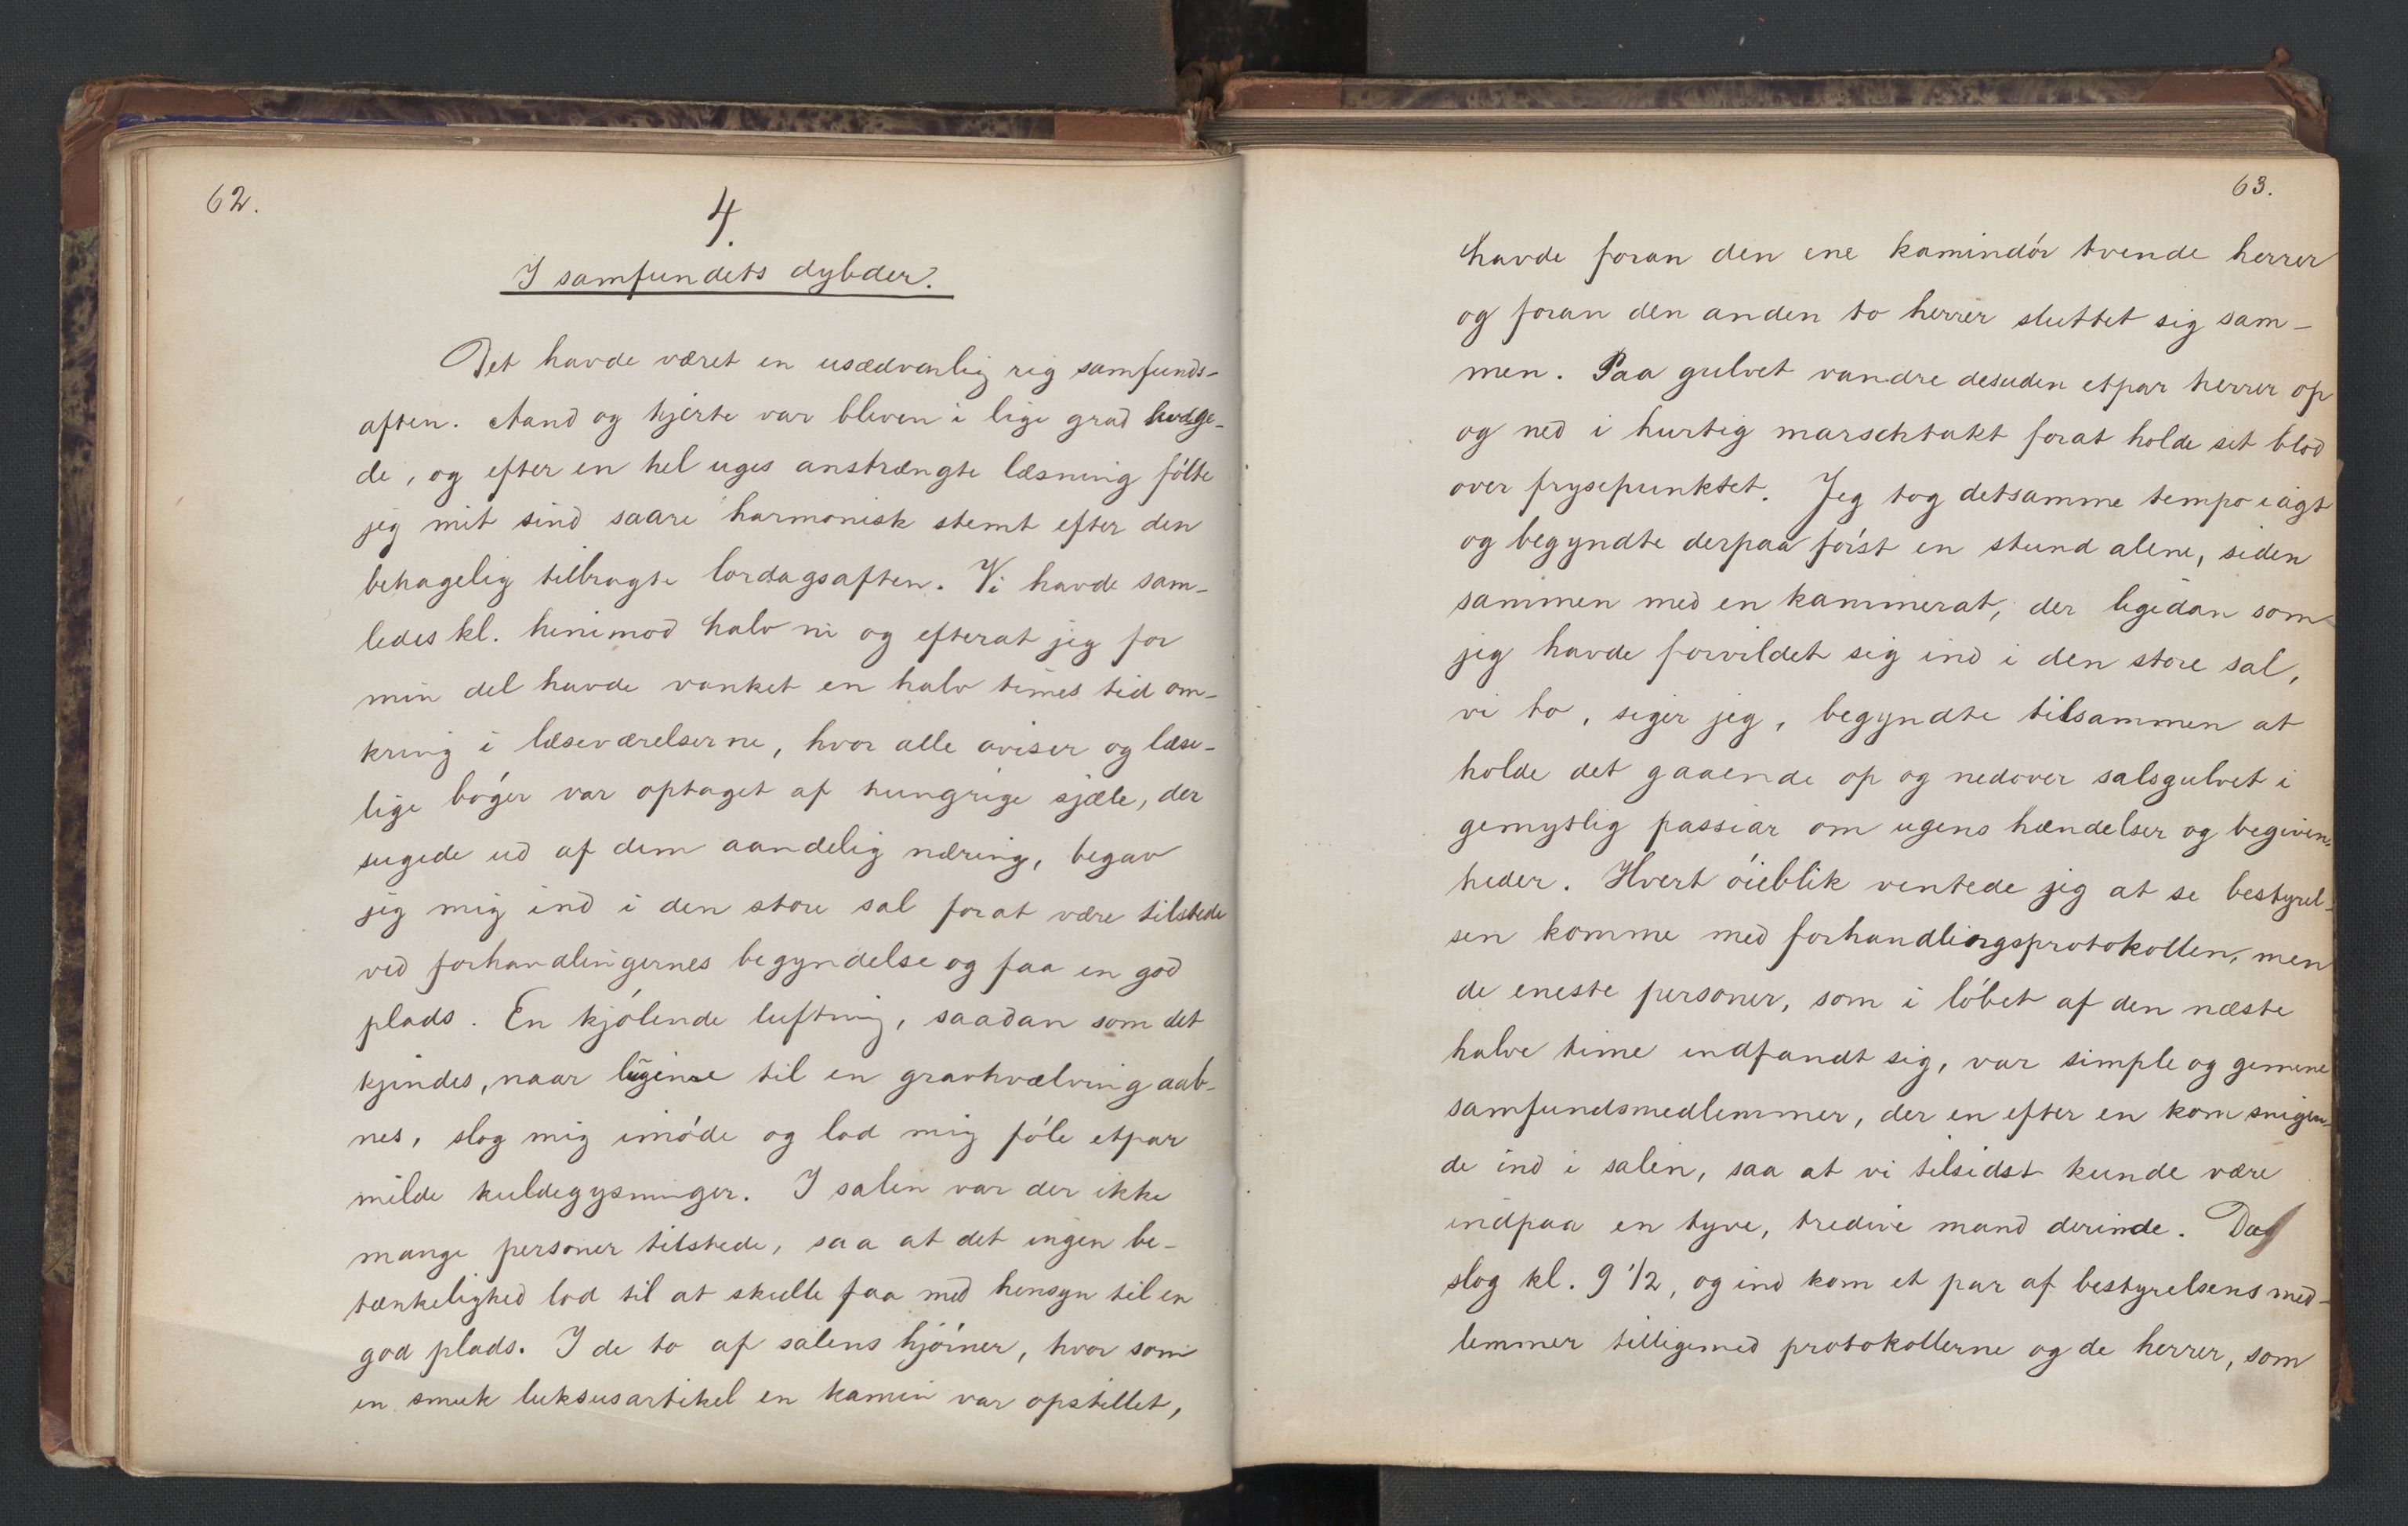 62.
4.
I samfundets dybder.
Det havde været en usædvanlig rig samfunds-
aften. Aand og hjerte var bleven i lige grad kvæge-
de, og efter en hel uges anstrængte læsning fólte
jeg mit sind saare harmonisk stemt efter den
behagelig tilbragte lordagsaften. Vi havde sam-
ledes kl. henimod halv ni og efterat jeg for
min del havde vanket en halv times tid om-
kring i læseværelserne, hvor alle aviser og læse-
lige bóger var optaget af hungrige sjæle, der
sugede ud af dem aandelig næring, begav
jeg mig ind i den store sal forat være tilstede
ved forhandlingernes begyndelse og faa en god
plads. En kjólende luftning, saadan som det
kjendes, naar lugerne til en gravhvælving aab-
nes, slog mig imóde og lod mig fóle etpar
milde kuldegysninger. I salen var der ikke
mange personer tilstede, saa at det ingen be-
tænkelighed lod til at skulle faa med hensyn til en
god plads. I de to af salens hjórner, hvor som
en smuk luksusartikel en kamin var opstillet,
63.
havde foran den ene kamindór tvende herrer
og foran den anden to herrer sluttet sig sam-
men. Paa gulvet vandre desuden etpar herrer op
og ned i hurtig marschtakt forat holde sit blod
over frysepunktet. Jeg tog detsamme tempo iagt
og begyndte derpaa fórst en stund alene, siden
sammen med en kammerat, der ligedan som
jeg havde forvildet sig ind i den store sal,
vi to, siger jeg, begyndte tilsammen at
holde det gaaende op og nedover salsgulvet i
gemytlig passiar om ugens hændelser og begiven-
heder. Hvert óieblik ventede jeg at se bestyrel-
sen komme med forhandlingsprotokollen, men
de eneste personer, som i lóbet af den næste
halve time indfandt sig, var simple og gemene
samfundsmedlemmer, der en efter en kom snigen-
de ind i salen, saa at vi tilsidst kunde være
indpaa en tyve, tredive mand derinde. Da
slog kl. 9 1/2, og ind kom et par af bestyrelsens med-
lemmer tilligemed protokollerne og de herrer, som